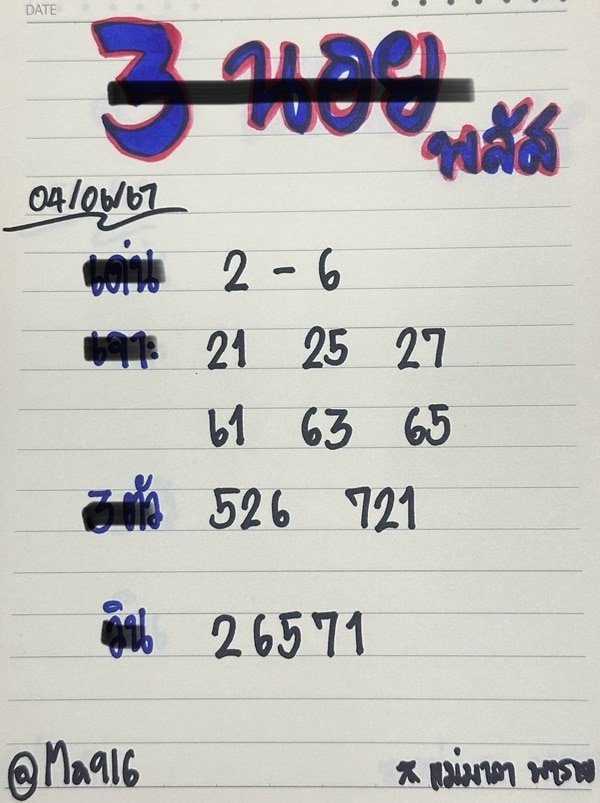 DATE
3 นอย
พลัส
04/06/67
เด่น 2 - 6
เจาะ 21 25 27
61 63 65
3 ตัว 526 721
วิน 26571
@Ma916 * แม่มาดา พารวย